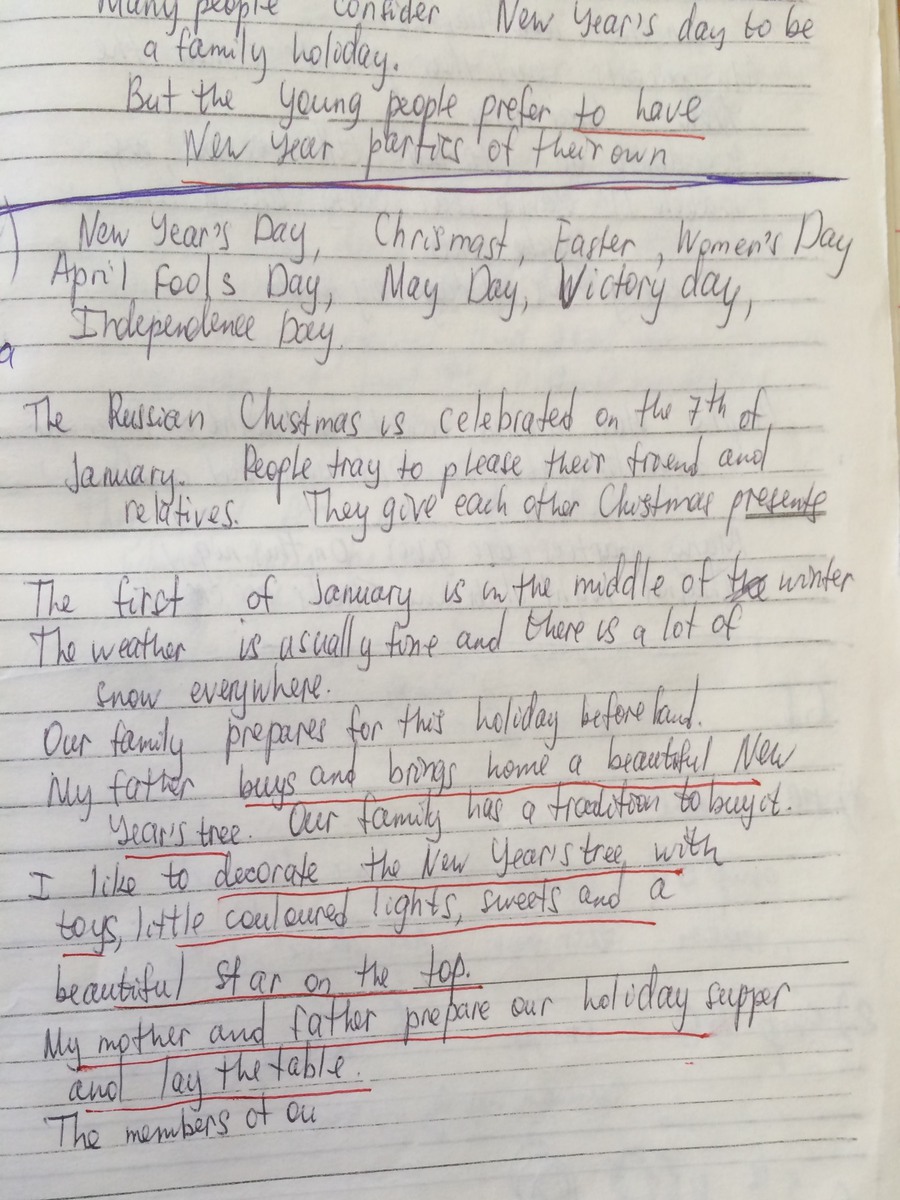 Many people consider New Year's day to be
a family holiday.
But the young people prefer to have
New Year parties of their own
New Year's Day, Chrismast, Easter, Women's Day
April Fools Day, May Day, Victory day,
Independence Day.
a
The Russian Chistmas is celebrated on the 7th of
January. People tray to please their friend and
relatives. They give each other Chistmas presents
The first of January is in the middle of the winter
The weather is usually fine and there is a lot of
snow everywhere.
Our family prepares for this holiday before land.
My father buys and brings home a beautiful New
Year's tree. Our family has a tradition to buy it.
I like to decorate the New Year's tree with
toys, little couloured lights, sweets and a
beautiful star on the top.
My mother and father prepare our holiday supper
and lay the table.
The members of ou